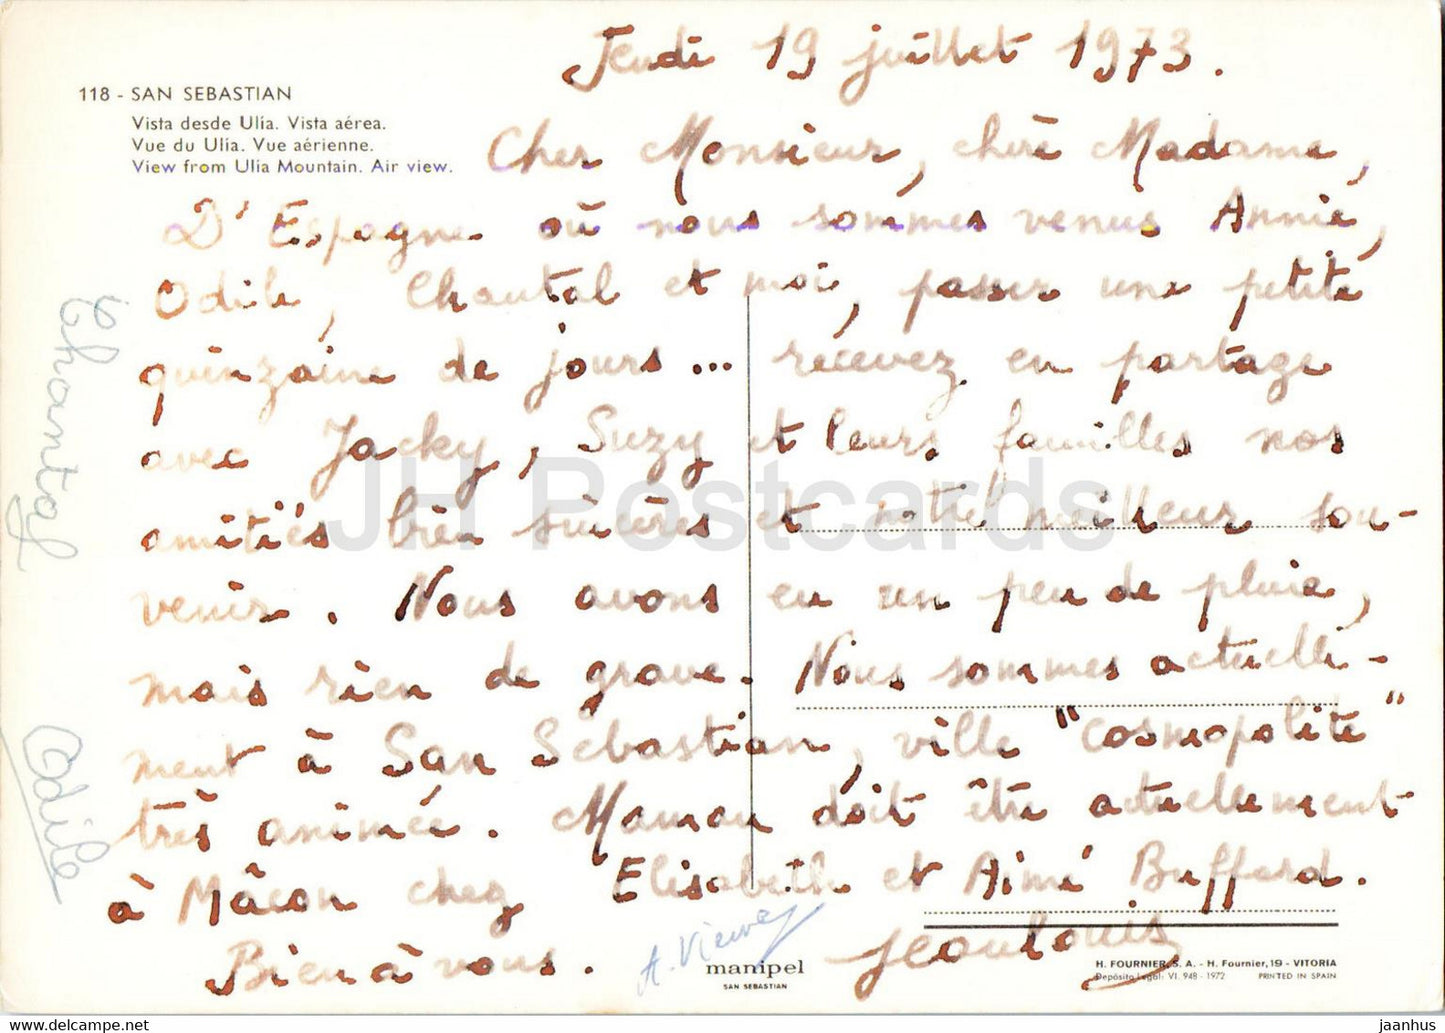 Jeudi 19 juillet 1973.
118 - SAN SEBASTIAN
Vista desde Ulía. Vista aérea.
Vue du Ulía. Vue aérienne.
View from Ulía Mountain. Air view.
Cher Monsieur, chère Madame,
D'Espagne où nous sommes venus Annie,
Odile, Chantal et moi, passer une petite
quinzaine de jours... recevez en partage
avec Jacky, Suzy et leurs familles nos
amitiés bien sincères et notre meilleur sou-
venir. Nous avons eu un peu de pluie,
mais rien de grave. Nous sommes actuelle-
ment à San Sebastian, ville "cosmopolite"
très animée. Maman doit être actuellement
à Mâcon chez Elisabeth et Aimé Buffard.
Bien à vous. Jeanlouis
Chantal
Odile
A. Vieuvey
manipel
SAN SEBASTIAN
H. FOURNIER, S. A. - H. Fournier, 19 - VITORIA
Depósito Legal: VI. 948 - 1972 PRINTED IN SPAIN
JH Postcards
jaanhus
hippostcard.com